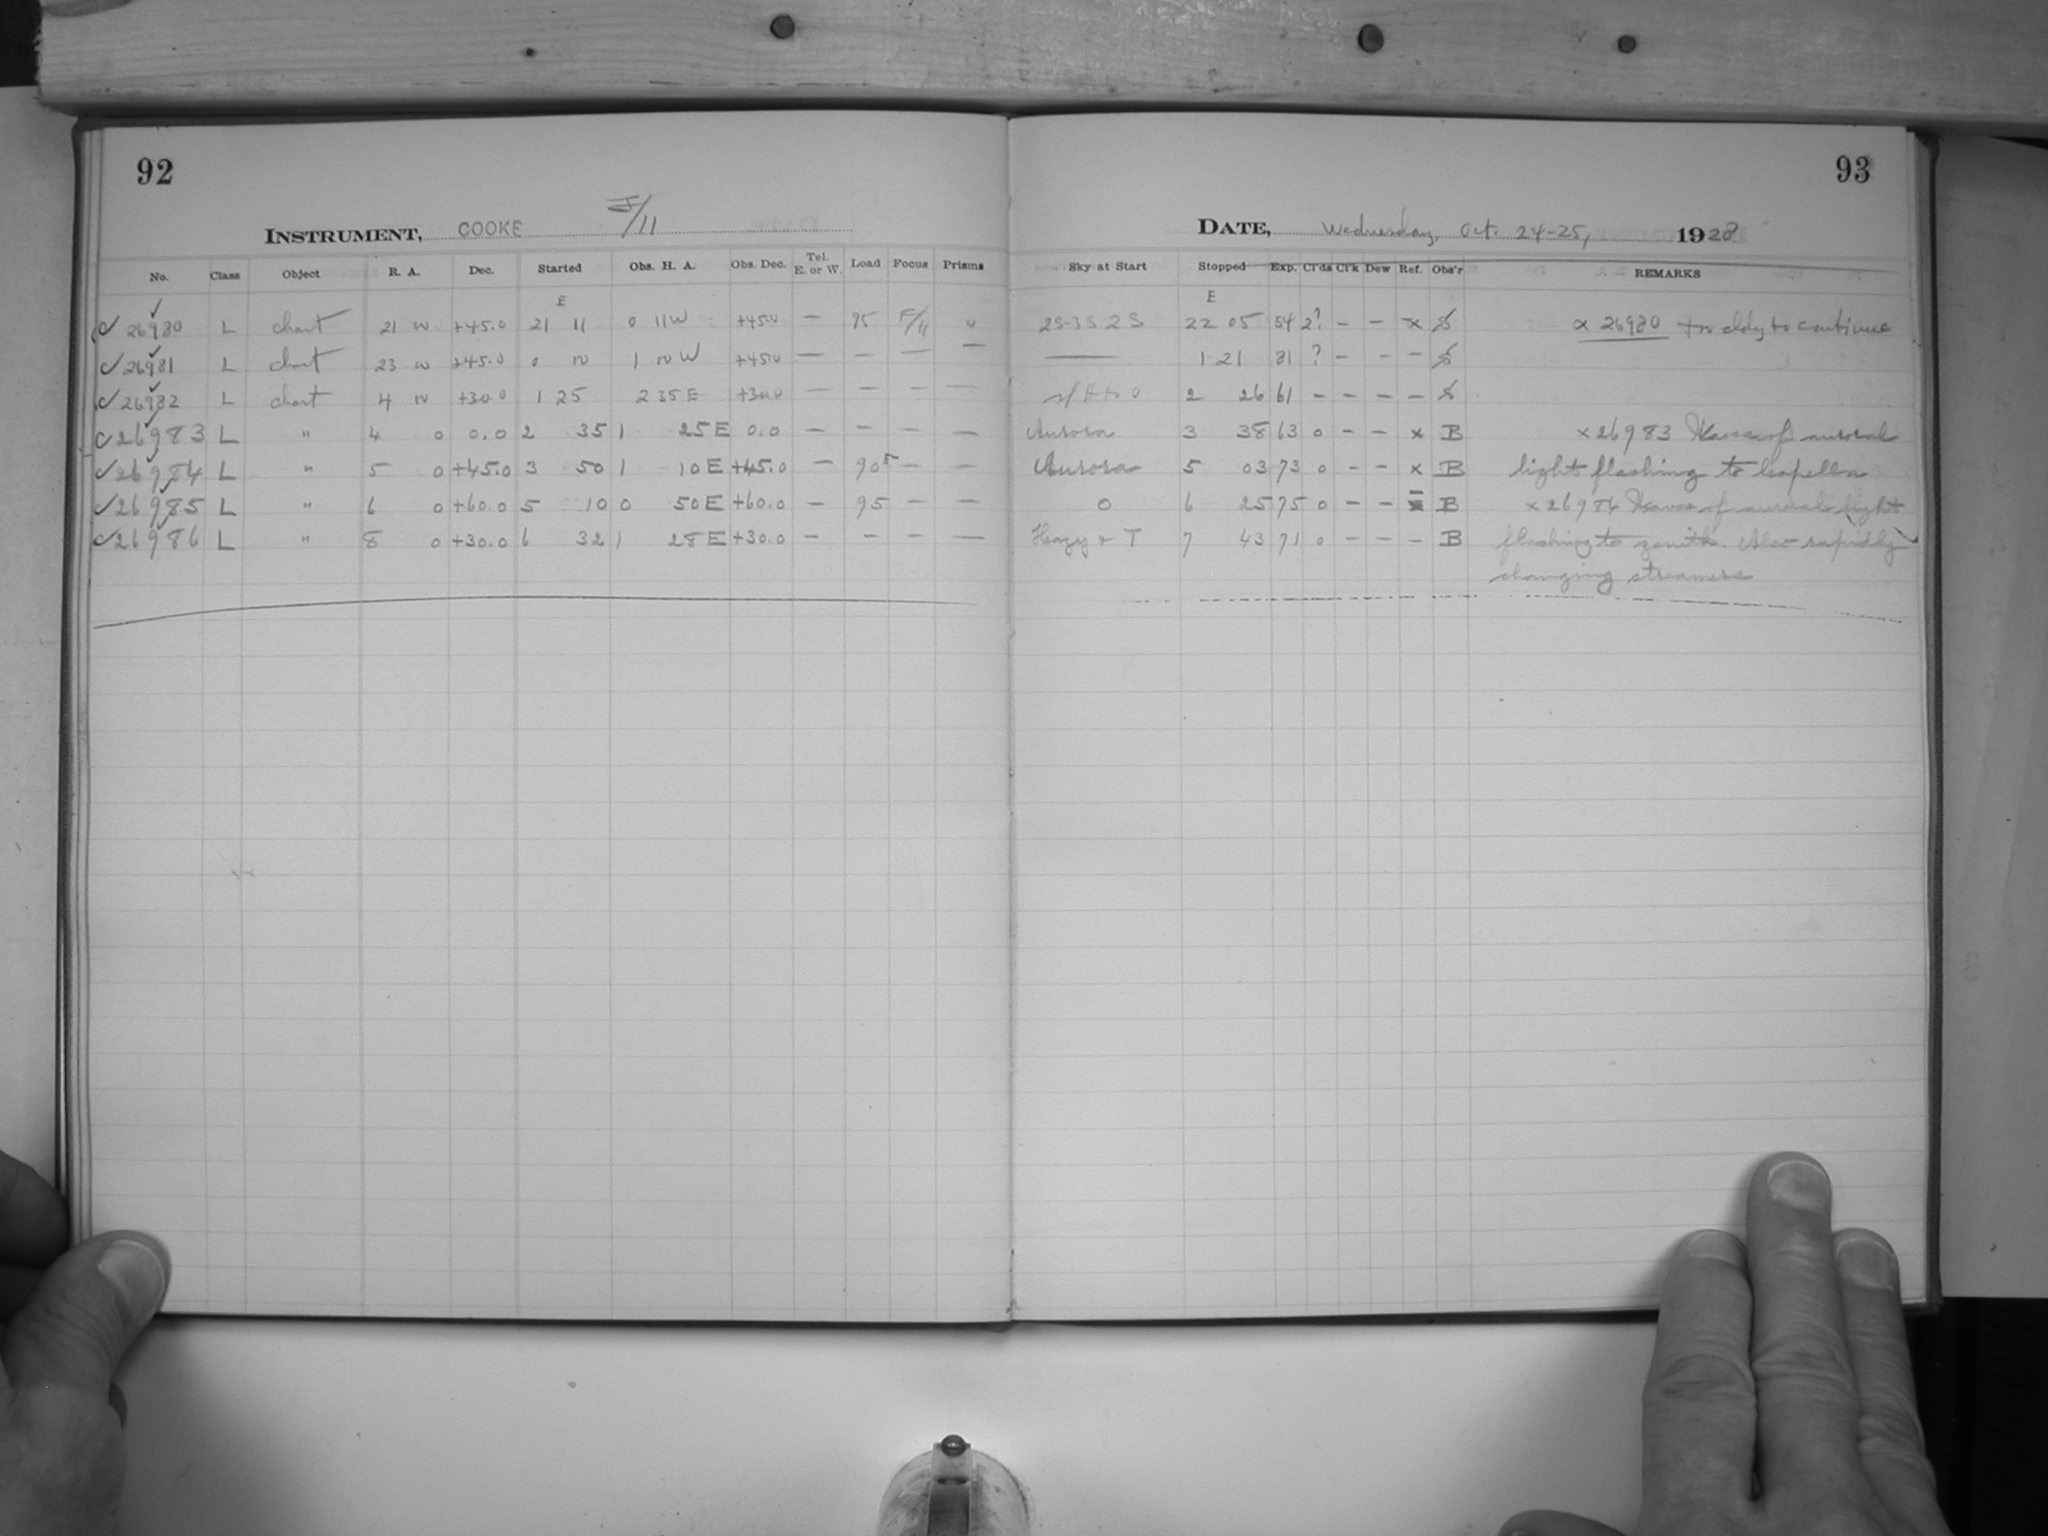 92
INSTRUMENT, COOKE F/11
No. Class Object R. A. Dec. Started Obs. H. A. Obs. Dec. Tel. E. or W. Load Focus Prisms
E
✓ 26980 L chart 21 +45.0 21 11 0 11 W +45.0 — 95 F/11 0
✓ 26981 L chart 23 +45.0 0 1 W +45.0 — — — —
✓ 26982 L chart 4 +30.0 1 25 2 35 E +30.0 — — — —
✓ 26983 L " 4 0 0.0 2 35 1 25 E 0.0 — — — —
✓ 26984 L " 5 0 +45.0 3 50 1 10 E +45.0 — 90⁵ — —
✓ 26985 L " 6 0 +60.0 5 10 0 50 E +60.0 — 95 — —
✓ 26986 L " 8 0 +30.0 6 32 1 28 E +30.0 — — — —
93
DATE, Wednesday, Oct. 24-25, 1928
Sky at Start Stopped Exp. Cl'ds Cl'k Dew Ref. Obs'r REMARKS
E
2S-3S 2S 22 05 54 2? — — x x 26980 to continue
—— 1 21 81 ? — — —
2 26 61 — — — —
Aurora 3 38 63 0 — — x B x 26983 Waves of auroral
Aurora 5 03 73 0 — — x B light flashing to Capella
0 6 25 75 0 — — B x 26984 Waves of auroral light
Hazy + T 7 43 71 0 — — — B flashing to zenith. Also rapidly
changing streamers